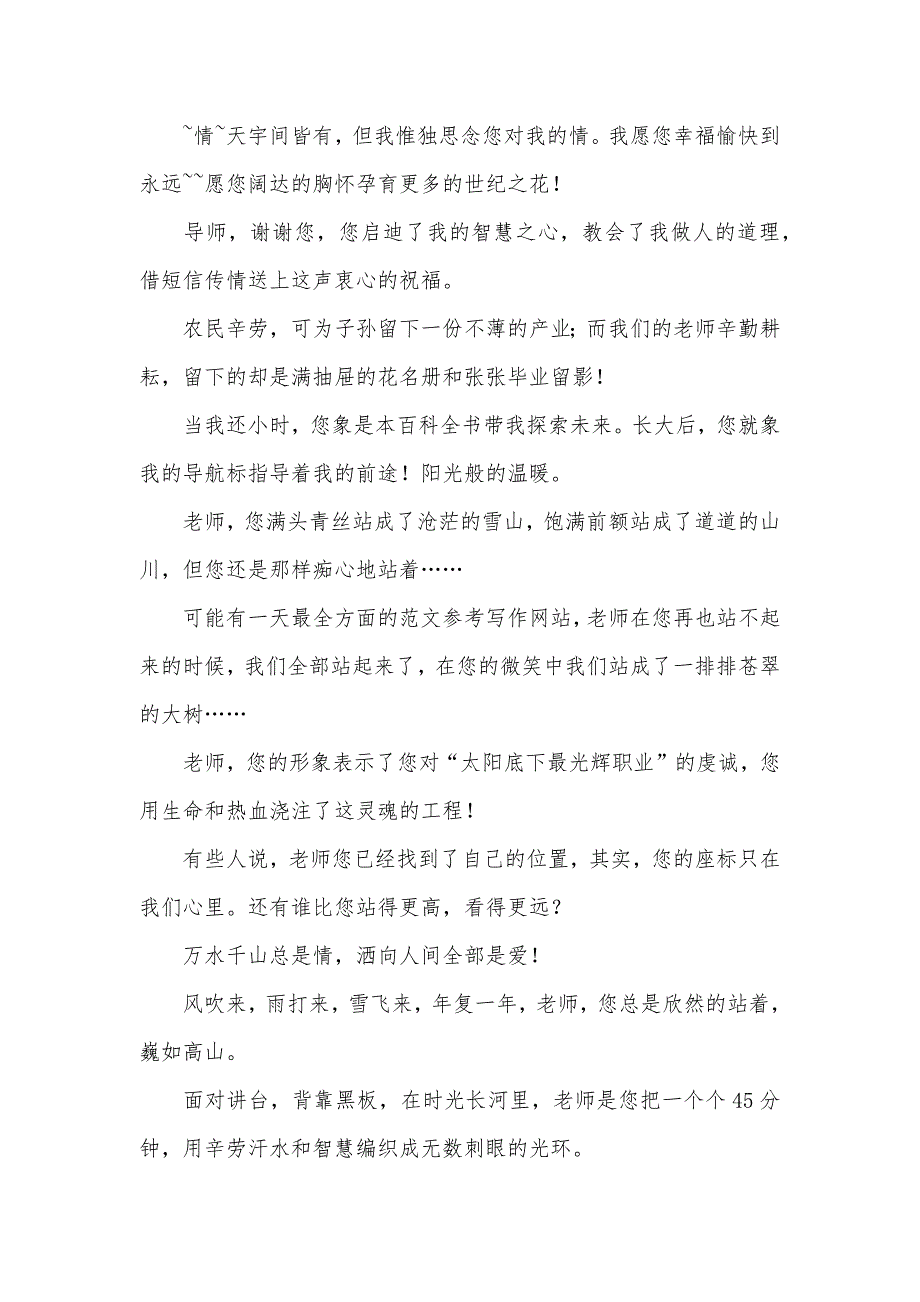 ~情~天宇间皆有，但我惟独思念您对我的情。我愿您幸福愉快到
永远~~愿您阔达的胸怀孕育更多的世纪之花！
导师，谢谢您，您启迪了我的智慧之心，教会了我做人的道理，
借短信传情送上这声衷心的祝福。
农民辛劳，可为子孙留下一份不薄的产业；而我们的老师辛勤耕
耘，留下的却是满抽屉的花名册和张张毕业留影！
当我还小时，您象是本百科全书带我探索未来。长大后，您就象
我的导航标指导着我的前途！阳光般的温暖。
老师，您满头青丝站成了沧茫的雪山，饱满前额站成了道道的山
川，但您还是那样痴心地站着……
可能有一天最全方面的范文参考写作网站，老师在您再也站不起
来的时候，我们全部站起来了，在您的微笑中我们站成了一排排苍翠
的大树……
老师，您的形象表示了您对“太阳底下最光辉职业”的虔诚，您
用生命和热血浇注了这灵魂的工程！
有些人说，老师您已经找到了自己的位置，其实，您的座标只在
我们心里。还有谁比您站得更高，看得更远？
万水千山总是情，洒向人间全部是爱！
风吹来，雨打来，雪飞来，年复一年，老师，您总是欣然的站着，
巍如高山。
面对讲台，背靠黑板，在时光长河里，老师是您把一个个 45 分
钟，用辛劳汗水和智慧编织成无数刺眼的光环。